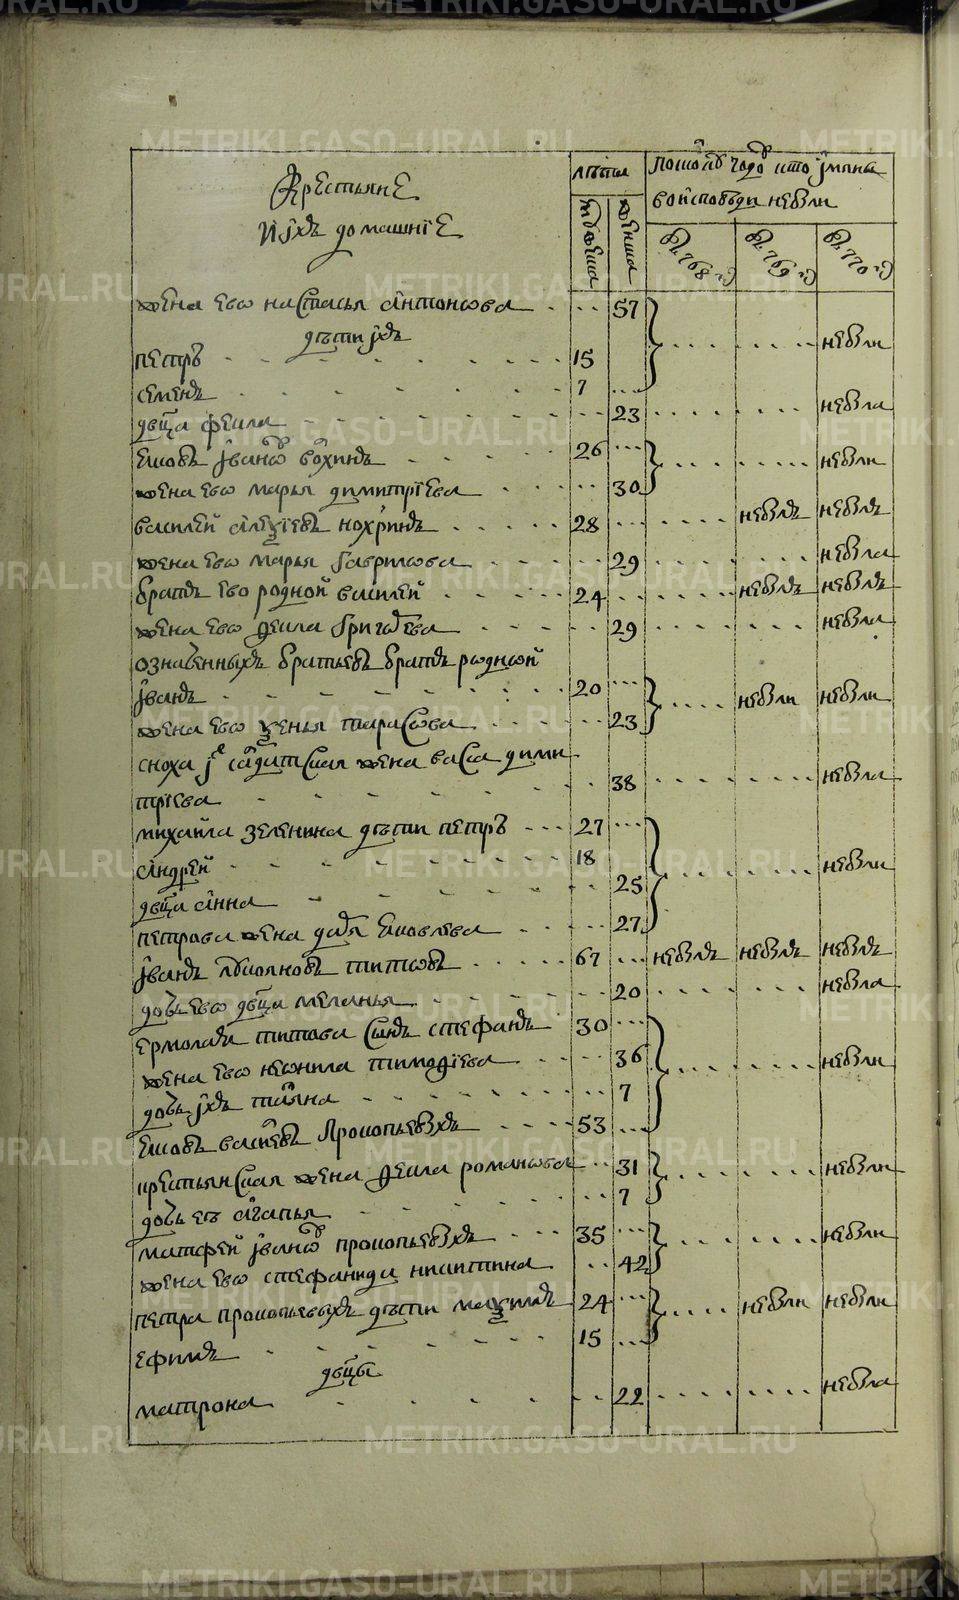 Крестьяне
И ихъ домашніе
лѣта
мужеска
женска
по сколку годовъ кто имяны
во исповеди небыли
в 768 г
в 769 г
в 770 г
жена ево настасья антонова 57
дѣти ихъ небыли
петръ 15
семенъ 7
двца фекла 23 небыла
яковъ івановъ вохминъ 26 небыли
жена ево марья димитріева 30
василей алеѯіевъ нохринъ 28 небылъ небылъ
жена ево марья гаврилова 29 небыла
братъ ево родной василей 24 небылъ небылъ
жена ево ѳекла григорева 29 небыла
означенныхъ братьевъ братъ родной
іванъ 20 небыли небыли
жена ево ѯенья тарасова 23
сноха іх салдатская жена васса дими
тріева 38 небыла
михаила зеленина дѣти петръ 27
андрей 18 небыли
двца анна 25
петрова жена дарья яковлева 27
іванъ титовъ 67 небылъ небылъ небылъ
дочь ево двца меланья 20 небыла
ермолаы титова сынъ стефанъ 30
жена ево неонила тимоѳіева 36 небыли
дочь ихъ татяна 7
яковъ васильевъ прокопьевыхъ 53
крестьянская жена ѳекла романова 31 небыли
дочь ея агапья 7
матфей івановъ прокопьевыхъ 35 небыли
жена ево стефанида никитина 42
петра прокопьевыхъ дѣти маѯимъ 24 небыли небыли
ефимъ 15
двцы
матрона 22 небыла
METRIKI.GASO-URAL.RU